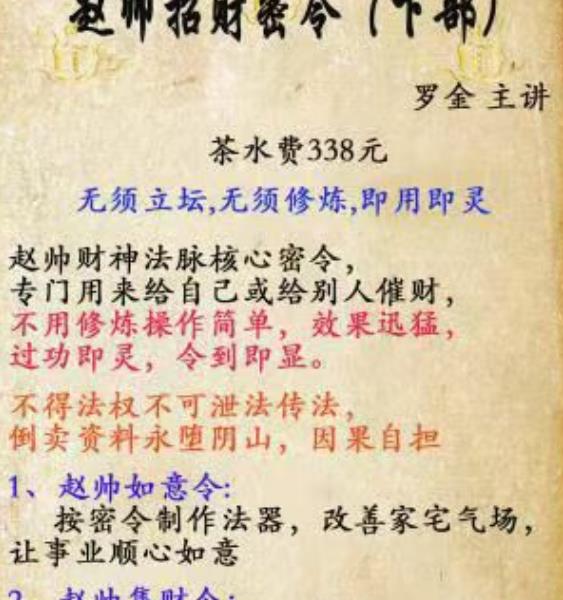 赵帅招财密令（下部）
罗金 主讲
茶水费338元
无须立坛,无须修炼,即用即灵
赵帅财神法脉核心密令，
专门用来给自己或给别人催财，
不用修炼操作简单，效果迅猛，
过功即灵，令到即显。
不得法权不可泄法传法，
倒卖资料永堕阴山，因果自担
1、赵帅如意令:
按密令制作法器，改善家宅气场，
让事业顺心如意
2、赵帅集财令: